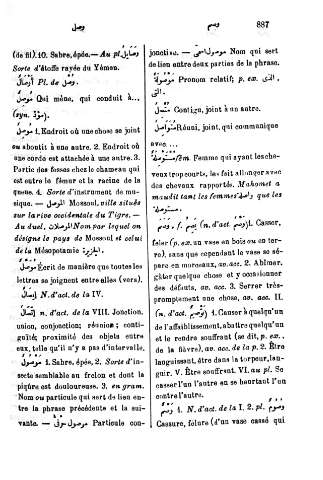 وصل
وصم
887
(de fil). 10. Sabre, épée. — Au pl. وَصَايِل
Sorte d'étoffe rayée du Yémen.
أَوْصَالٌ Pl. de وصل.
مُوصِلٌ Qui mène, qui conduit à...
(syn. مُؤَدٍّ).
مَوْصِلٌ 1. Endroit où une chose se joint
ou aboutit à une autre. 2. Endroit où
une corde est attachée à une autre. 3.
Partie des fosses chez le chameau qui
est entre le fémur et la racine de la
queue. 4. Sorte d'instrument de mu-
sique. — الموصل Mossoul, ville située
sur la rive occidentale du Tigre. —
Au duel, الموصلان Nom par lequel on
désigne le pays de Mossoul et celui
de la Mésopotamie الجزيرة.
Écrit de manière que toutes les
lettres se joignent entre elles (vers).
إِيصَالٌ N. d'act. de la IV.
اتِّصَالٌ n. d'act. de la VIII. Jonction,
union, conjonction; réunion; conti-
guïté; proximité des objets entre
eux, telle qu'il n'y a pas d'intervalle.
مَوْصُولٌ 1. Sabre, épée. 2. Sorte d'in-
secte semblable au frelon et dont la
piqûre est douloureuse. 3. en gram.
Nom ou particule qui sert de lien en-
tre la phrase précédente et la sui-
vante. — موصول حرفى Particule con-
jonctive. — موصول اسمى Nom qui sert
de lien entre deux parties de la phrase.
مَوْصُولَةٌ Pronom relatif; p. ex. الذى,
التى.
مُتَّصِلٌ Contigu, joint à un autre.
مُتَوَاصِلٌ Réuni, joint, qui communique
avec...
مُسْتَوْصِلَةٌ fém. Femme qui ayant les che-
veux trop courts, les fait allonger avec
des cheveux rapportés. Mahomet a
maudit tant les femmes واصلة que les
مستوصلة.
وَصَمَ f. (n. d'act. وَصْمٌ) 1. Casser,
fêler (p. ex. un vase en bois ou en ter-
re), sans que cependant le vase se sé-
pare en morceaux, av. acc. 2. Abîmer,
gâter quelque chose et y occasionner
des défauts, av. acc. 3. Serrer très-
promptement une chose, av. acc. II.
(n. d'act. تَوْصِيمٌ) 1. Causer à quelqu'un
de l'affaiblissement, abattre quelqu'un
et le rendre souffrant (se dit, p. ex.,
de la fièvre), av. acc. de la p. 2. Être
languissant, être dans la torpeur, lan-
guir. V. Être souffrant. VI. au pl. Se
casser l'un l'autre en se heurtant l'un
contre l'autre.
وَصْمٌ 1. N. d'act. de la I. 2. pl. وُصُومٌ
Cassure, fêlure (d'un vase cassé qui